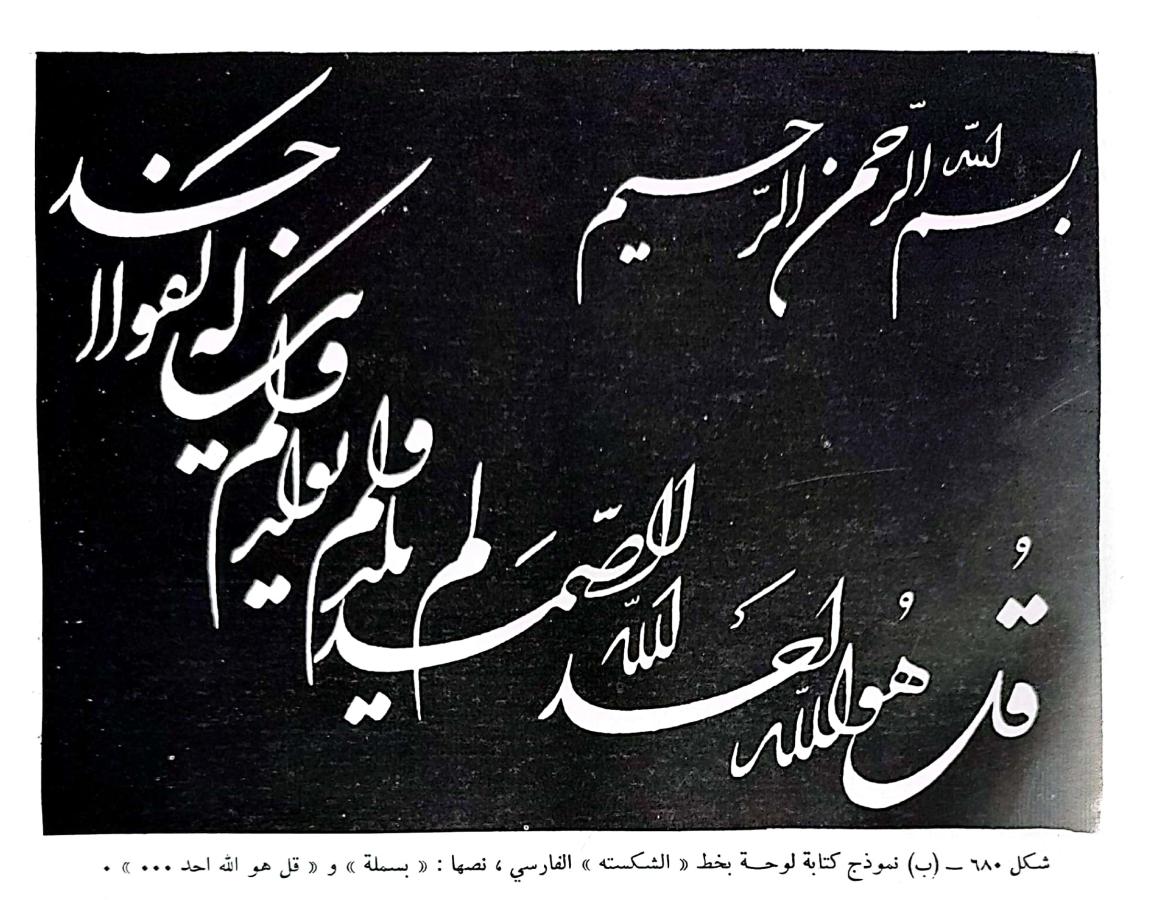 بسم الله الرّحمن الرّحيم
قُل هُو الله احَد
الله الصّمَد لم يلد
ولم يولد ولم يكن
له كفوا احد
شكل ٦٨٠ ــ (ب) نموذج كتابة لوحة بخط « الشكسته » الفارسي ، نصها : « بسملة » و « قل هو الله احد ... » .